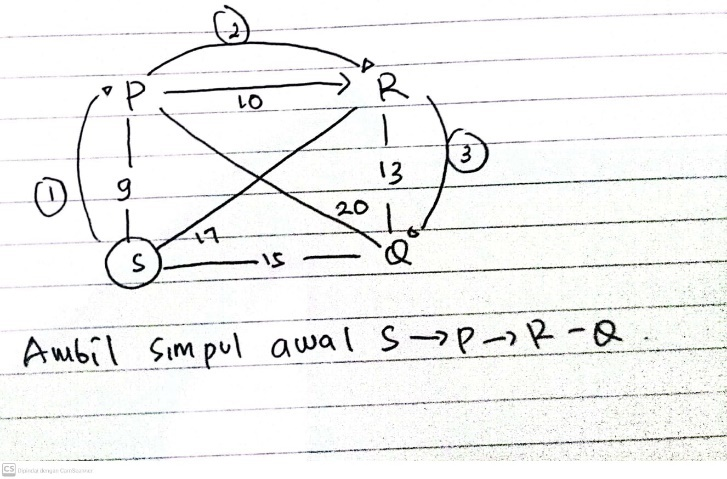 2
P 10 R
1 9 13 3
20
17
S 15 Q
Ambil simpul awal S → P → R - Q.
CS Dipindai dengan CamScanner